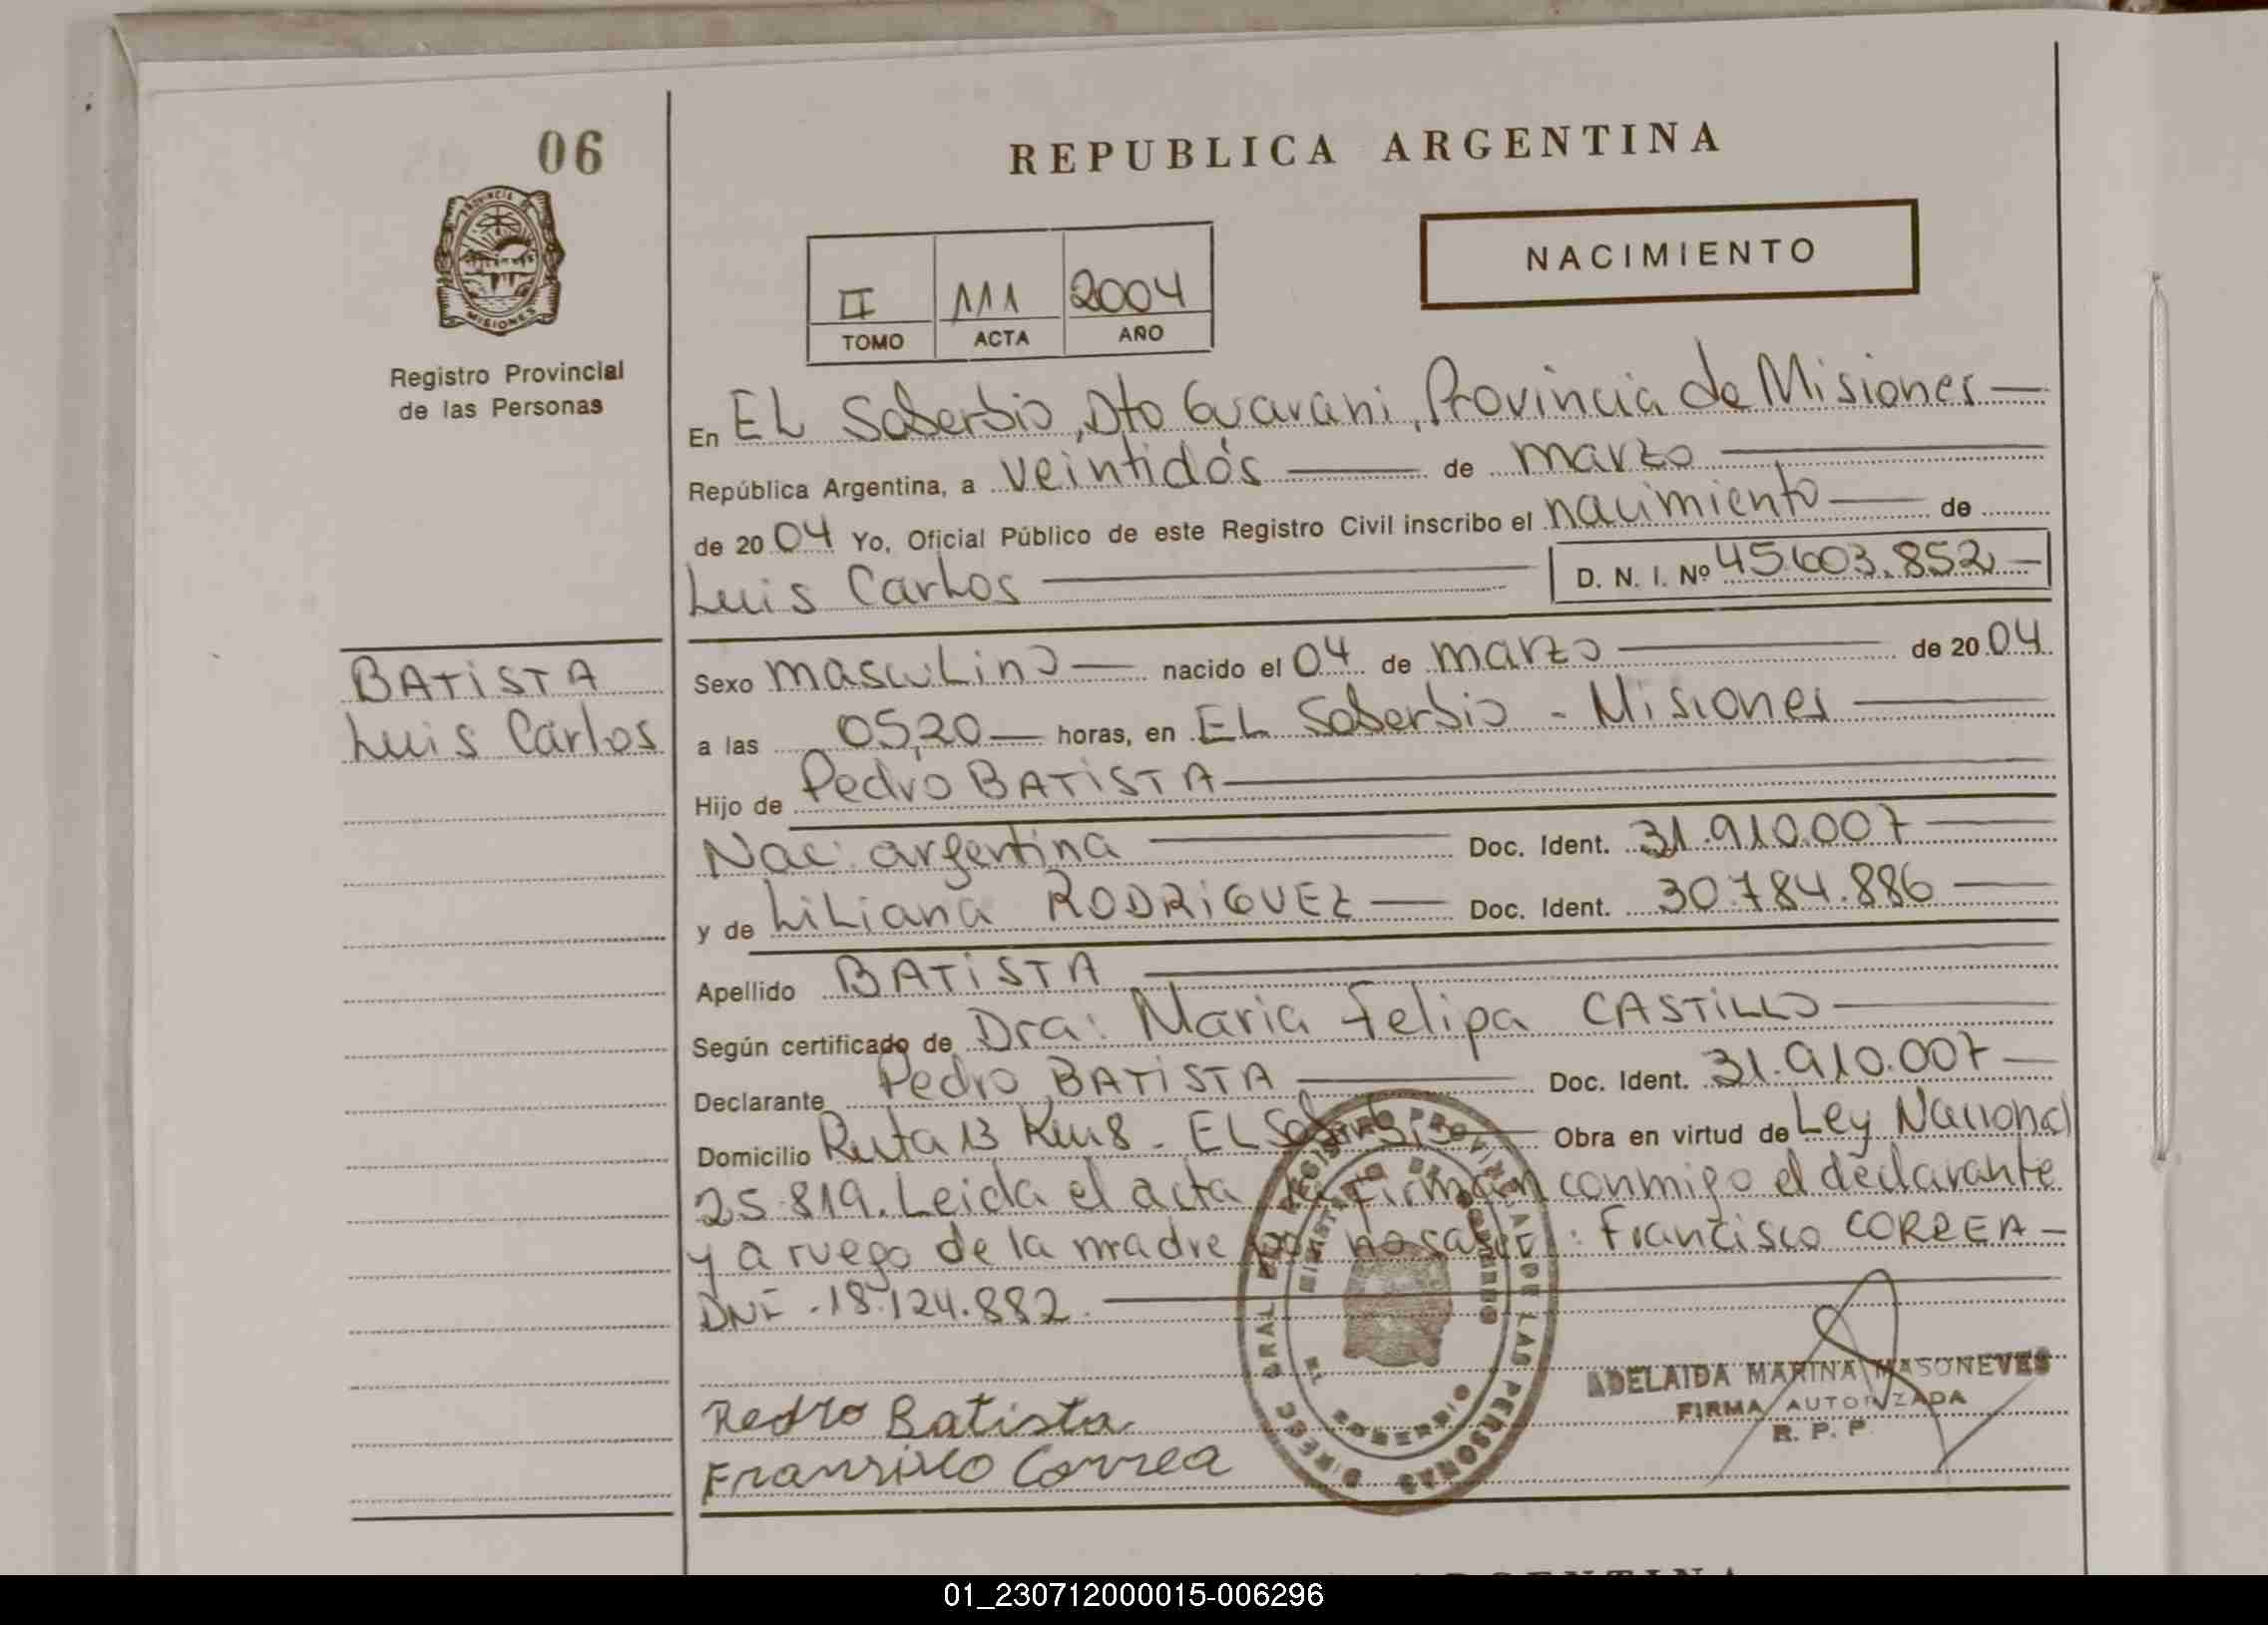 06
PROVINCIA DE
MISIONES
Registro Provincial
de las Personas
REPUBLICA ARGENTINA
NACIMIENTO
II 111 2004
TOMO ACTA AÑO
En EL Soberbio, Dto Guarani, Provincia de Misiones
República Argentina, a veintidós de marzo
de 2004 Yo, Oficial Público de este Registro Civil inscribo el nacimiento de
Luis Carlos D. N. I. Nº 45603.852
BATISTA
Luis Carlos
Sexo masculino nacido el 04 de marzo de 2004
a las 05,20 horas, en EL Soberbio - Misiones
Hijo de Pedro BATISTA
Nac: argentina Doc. Ident. 31.910.007
y de Liliana RODRIGUEZ Doc. Ident. 30.784.886
Apellido BATISTA
Según certificado de Dra: Maria Felipa CASTILLO
Declarante Pedro BATISTA Doc. Ident. 31.910.007
Domicilio Ruta 13 Km 8 - EL Soberbio Obra en virtud de Ley Nacional
25.819. Leida el acta la firman conmigo el declarante
y a ruego de la madre por no saber: Francisco CORREA
DNI - 18.124.882
Pedro Batista
Fransisco Correa
DIREC. GRAL. DEL REGISTRO PROVINCIAL DE LAS PERSONAS
MINISTERIO DE GOBIERNO
EL SOBERBIO
ADELAIDA MARINA MASONEVES
FIRMA AUTORIZADA
R. P. P.
01_230712000015-006296